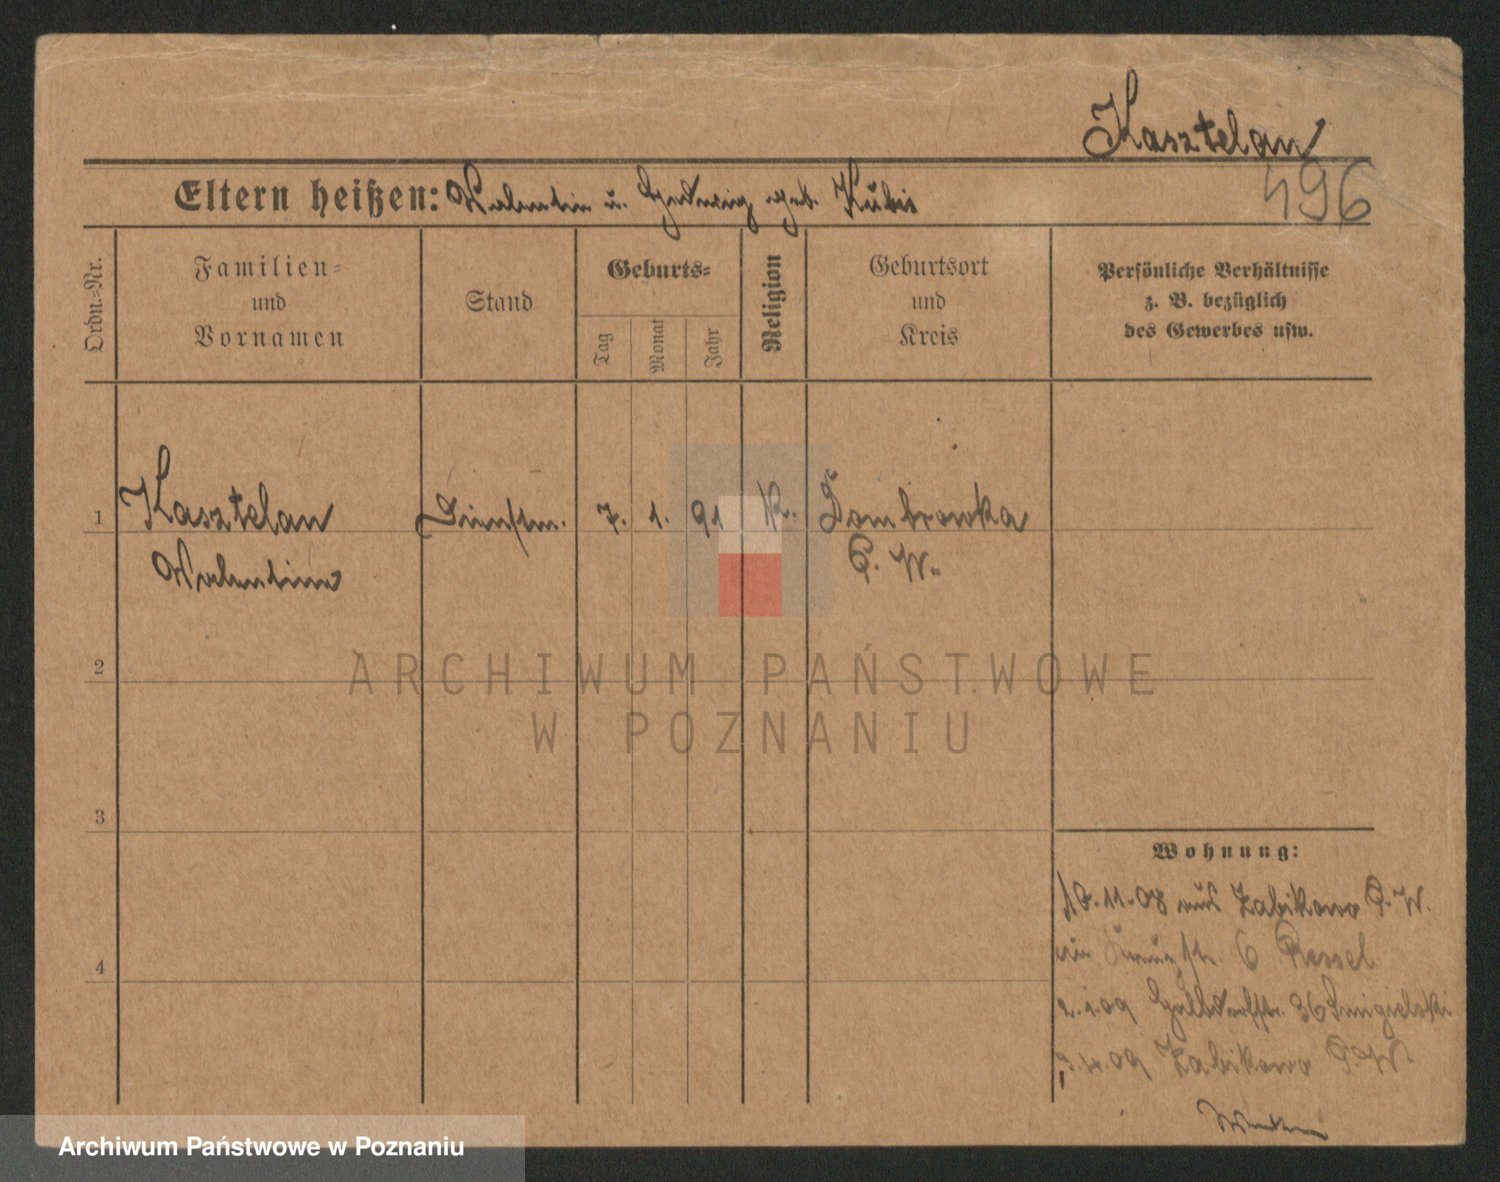 Kasztelan
496
Eltern heißen: Valentin u. Hedwig geb. Kubis
Ordn.-Nr.
Familien-
und
Vornamen
Stand
Geburts-
Tag
Monat
Jahr
Religion
Geburtsort
und
Kreis
Persönliche Verhältnisse
z. B. bezüglich
des Gewerbes usw.
1 Kasztelan Dienstm. 7. 1. 91 K. Dombrowka
Valentin P. W.
2
3
4
Wohnung:
10.11.08 aus Zabikowo P. W.
6 Ressel
2.1.09 36 Smigielski
3.4.09 Zabikowo P. W.
ARCHIWUM PAŃSTWOWE
W POZNANIU
Archiwum Państwowe w Poznaniu